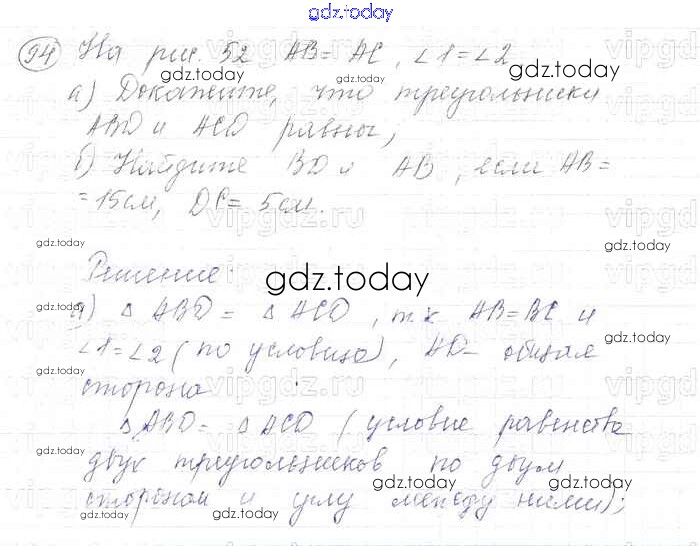 gdz.today
94 На рис. 52 AB = AC, ∠1 = ∠2
gdz.today
gdz.today
gdz.today
а) Докажите, что треугольники
ABD и ACD равны;
б) Найдите BD и AB, если AB =
= 15см, DC = 5см.
gdz.today
gdz.today
gdz.today
gdz.today
Решение:
gdz.today
а) △ ABD = △ ACD, т.к AB = BC и
gdz.today
gdz.today
∠1 = ∠2 (по условию), AD - общая
сторона
△ ABD = △ ACD (условие равенства
gdz.today
gdz.today
двух треугольников по двум
gdz.today
gdz.today
gdz.today
сторонам и углу между ними);